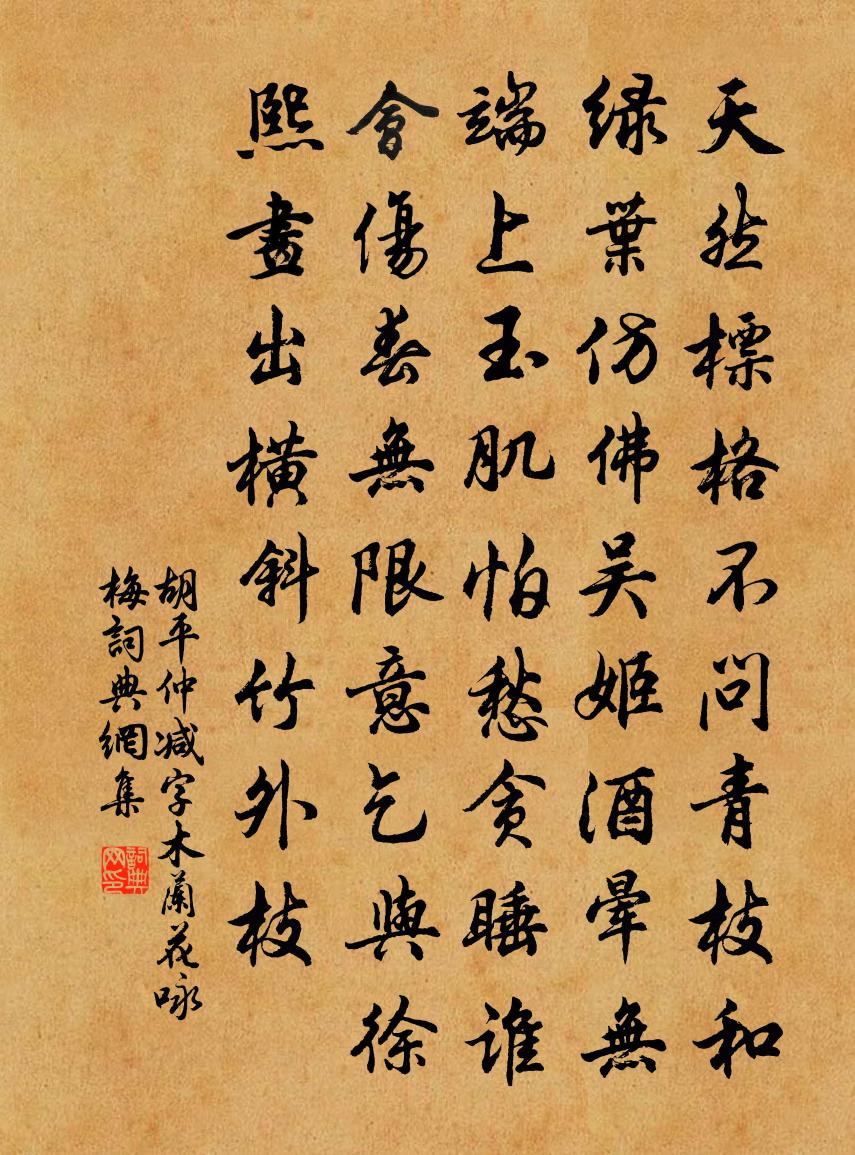 天然標格不問青枝和
緑葉仿佛吴姬酒暈無
端上玉肌怕愁貪睡誰
會傷春無限意乞與徐
熙畫出橫斜竹外枝
胡平仲减字木蘭花咏
梅詞典網集
詞典
网印